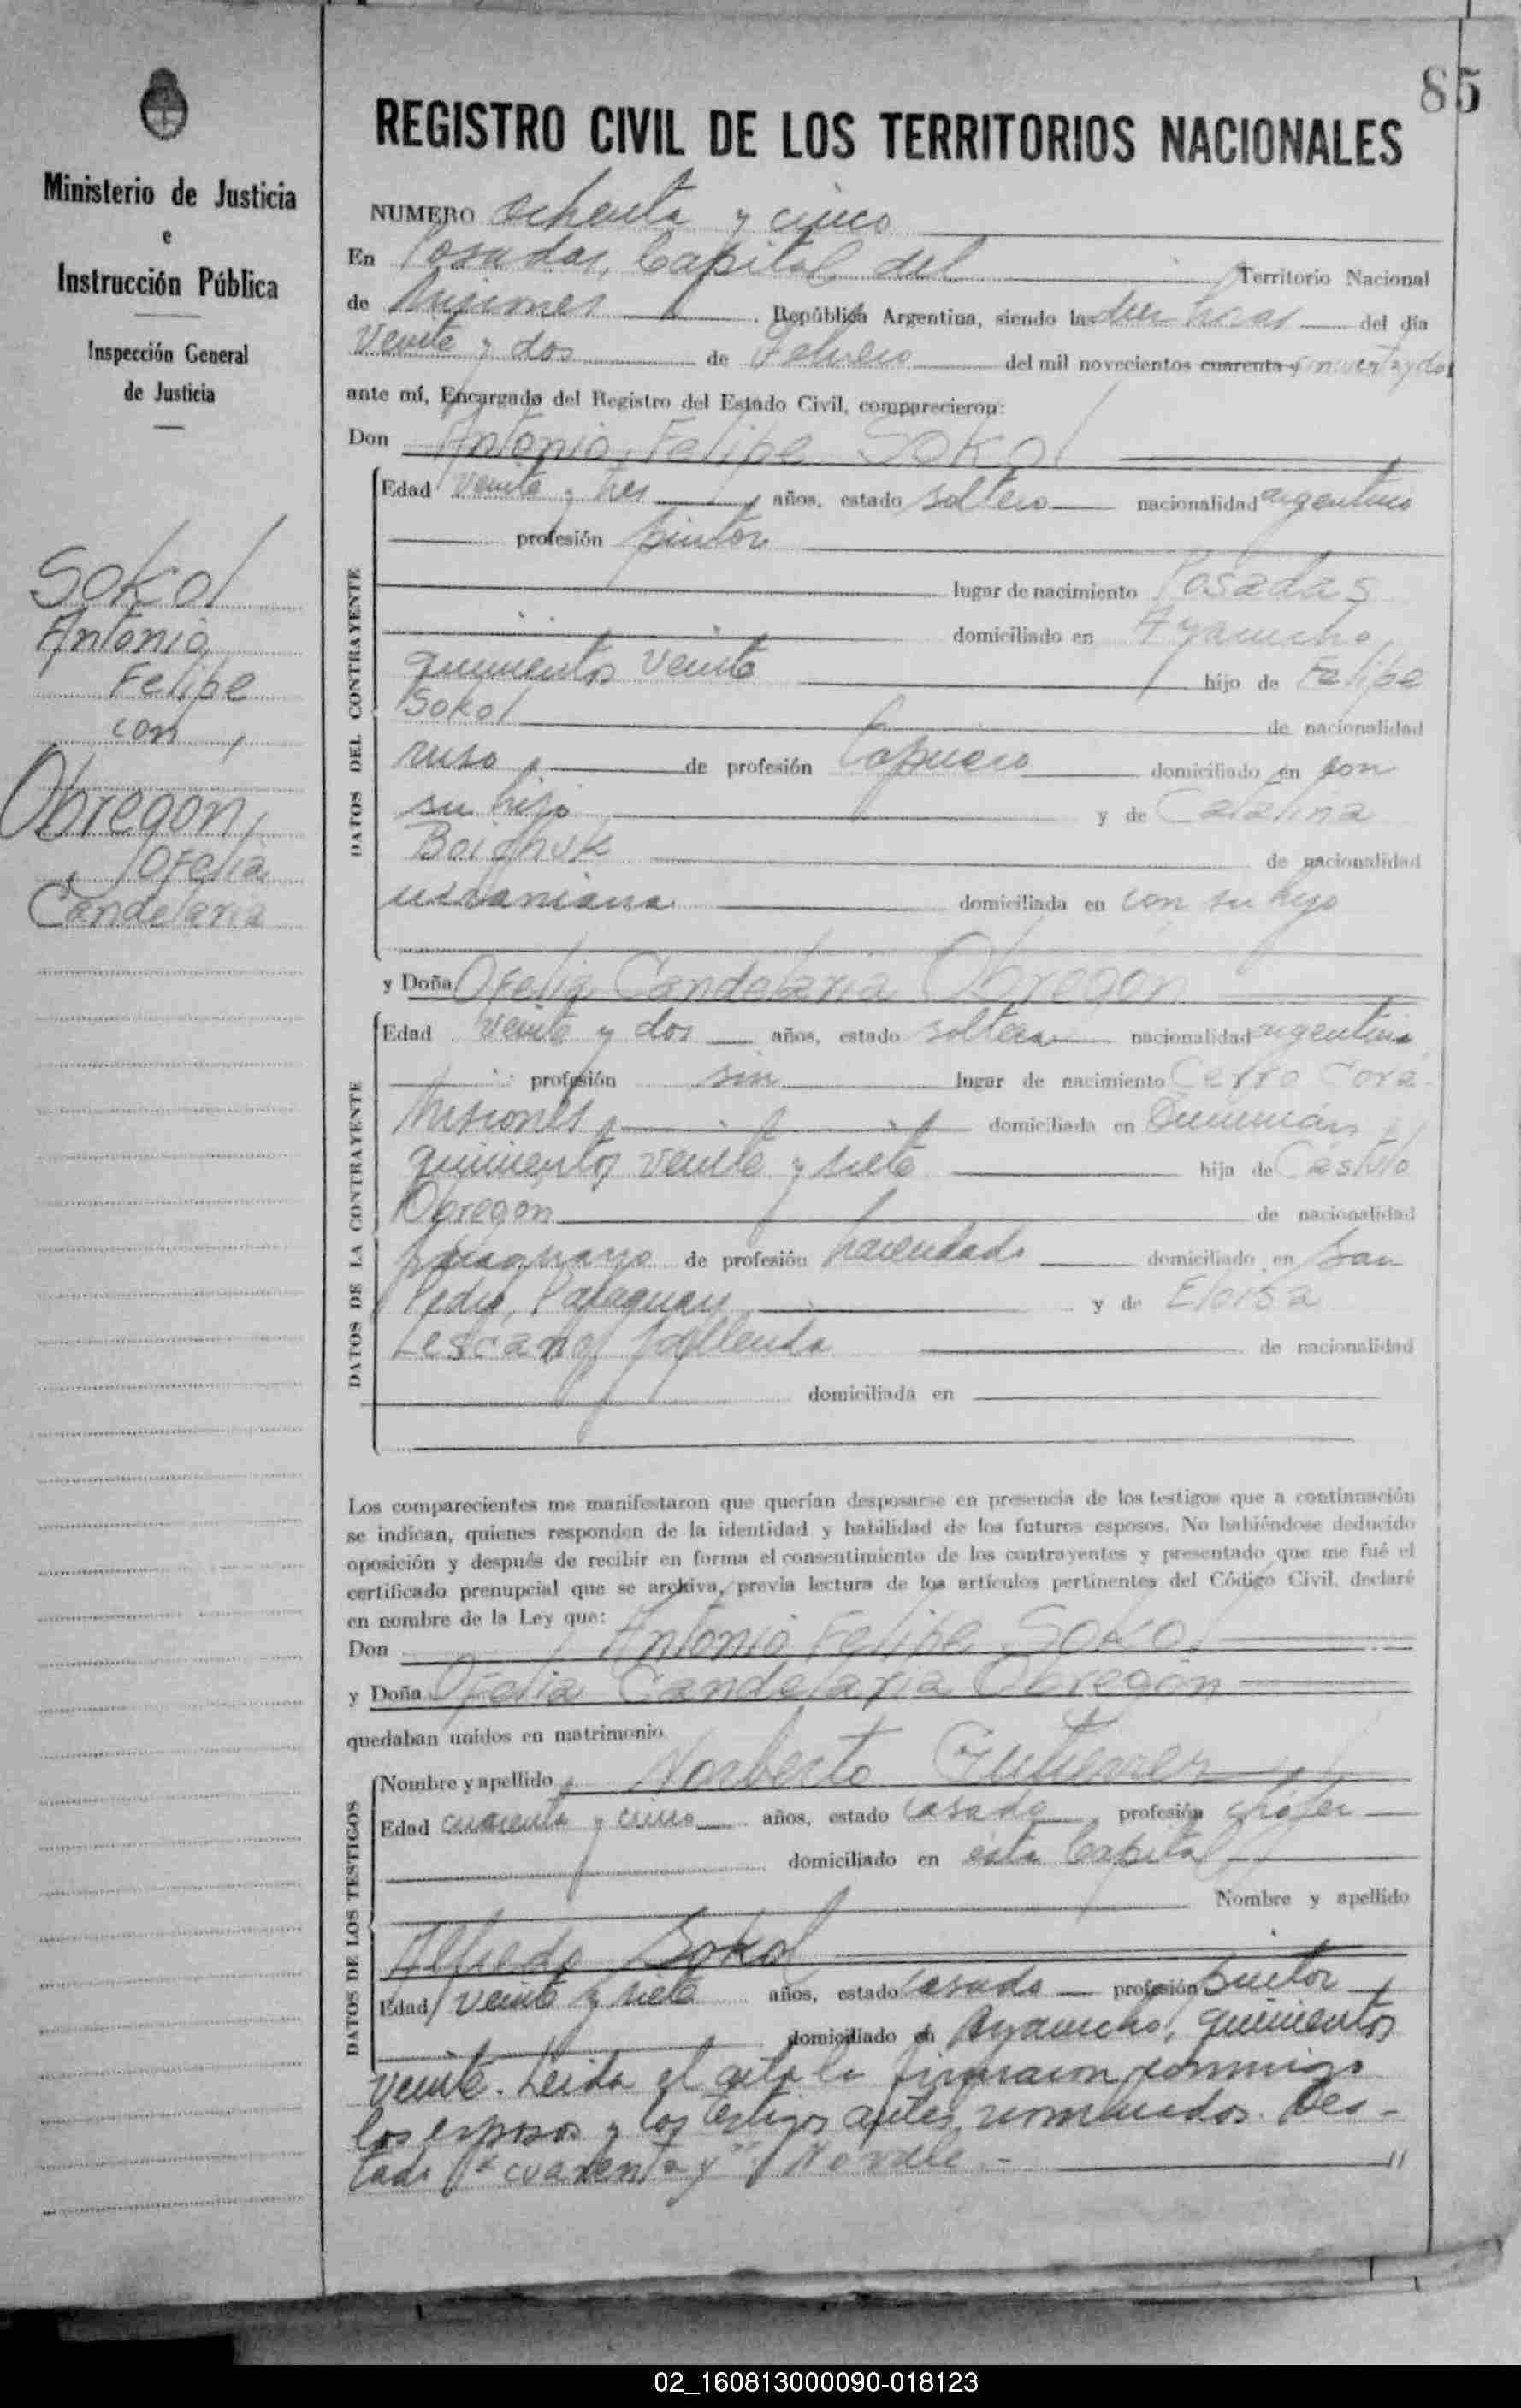 85
Ministerio de Justicia
e
Instrucción Pública
Inspección General
de Justicia
Sokol
Antonio
Felipe
con
Obregon,
Ofelia
Candelaria
REGISTRO CIVIL DE LOS TERRITORIOS NACIONALES
NUMERO ochenta y cinco
En Posadas, Capital del Territorio Nacional
de Misiones, República Argentina, siendo las diez horas del día
veinte y dos de Febrero del mil novecientos cuarenta y cincuenta y dos
ante mí, Encargado del Registro del Estado Civil, comparecieron:
Don Antonio Felipe Sokol
DATOS DEL CONTRAYENTE
Edad veinte y tres años, estado soltero nacionalidad argentino
profesión pintor
lugar de nacimiento Posadas
domiciliado en Ayacucho
quinientos veinte hijo de Felipe
Sokol de nacionalidad
ruso de profesión domiciliado en con
su hijo y de Catalina
Boichuk de nacionalidad
ucraniana domiciliada en con su hijo
y Doña Ofelia Candelaria Obregon
DATOS DE LA CONTRAYENTE
Edad veinte y dos años, estado soltera nacionalidad argentina
profesión sin lugar de nacimiento Cerro Cora
Misiones domiciliada en
quinientos veinte y siete hija de Castulo
Obregon de nacionalidad
paraguayo de profesión hacendado domiciliado en San
Pedro, Paraguay y de Eloisa
Lescano, fallecida de nacionalidad
domiciliada en
Los comparecientes me manifestaron que querían desposarse en presencia de los testigos que a continuación
se indican, quienes responden de la identidad y habilidad de los futuros esposos. No habiéndose deducido
oposición y después de recibir en forma el consentimiento de los contrayentes y presentado que me fué el
certificado prenupcial que se archiva, previa lectura de los artículos pertinentes del Código Civil, declaré
en nombre de la Ley que:
Don Antonio Felipe Sokol
y Doña Ofelia Candelaria Obregon
quedaban unidos en matrimonio.
DATOS DE LOS TESTIGOS
Nombre y apellido Norberto Gutierrez
Edad cuarenta y cinco años, estado casado profesión chófer
domiciliado en esta Capital
Nombre y apellido
Alfredo Sokol
Edad veinte y siete años, estado casado profesión pintor
domiciliado en Ayacucho, quinientos
veinte. Leida el acta la firmaron conmigo
los esposos y los testigos antes nombrados. Tes-
tado "cuarenta y" No vale.-
02_160813000090-018123